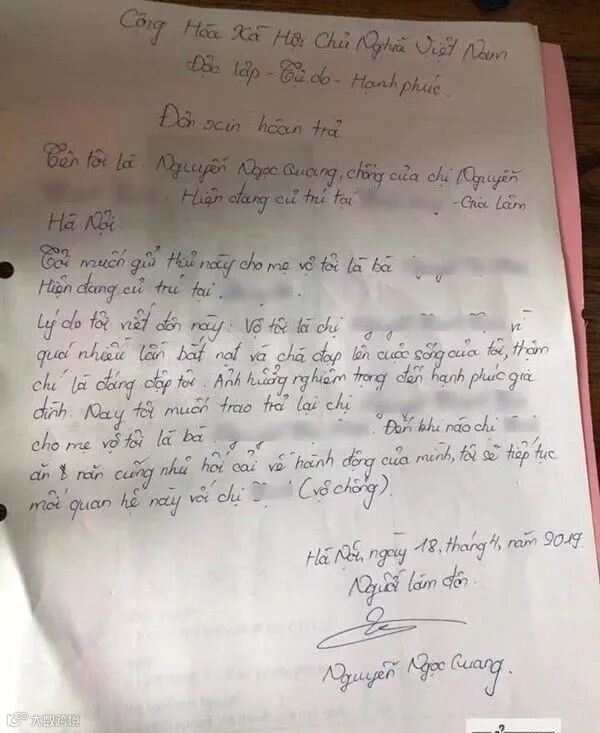 Cộng Hòa Xã Hội Chủ Nghĩa Việt Nam
Độc lập - Tự do - Hạnh phúc.
Đơn xin hoàn trả
Tên tôi là Nguyễn Ngọc Quang, chồng của chị Nguyễn
Hiện đang cư trú tại - Gia Lâm
Hà Nội.
Tôi muốn gửi thư này cho mẹ vợ tôi là bà
Hiện đang cư trú tại.
Lý do tôi viết đơn này: Vợ tôi là chị vì
quá nhiều lần bắt nạt và chà đạp lên cuộc sống của tôi, thậm
chí là đáng đập tôi. Ảnh hưởng nghiêm trọng đến hạnh phúc gia
đình. Nay tôi muốn trao trả lại chị
cho mẹ vợ tôi là bà Đến khi nào chị
ăn năn cũng như hối cải về hành động của mình, tôi sẽ tiếp tục
mối quan hệ này với chị (vợ chồng).
Hà Nội, ngày 18, tháng 4, năm 2019.
Người làm đơn.
Nguyễn Ngọc Quang.
大数跨境